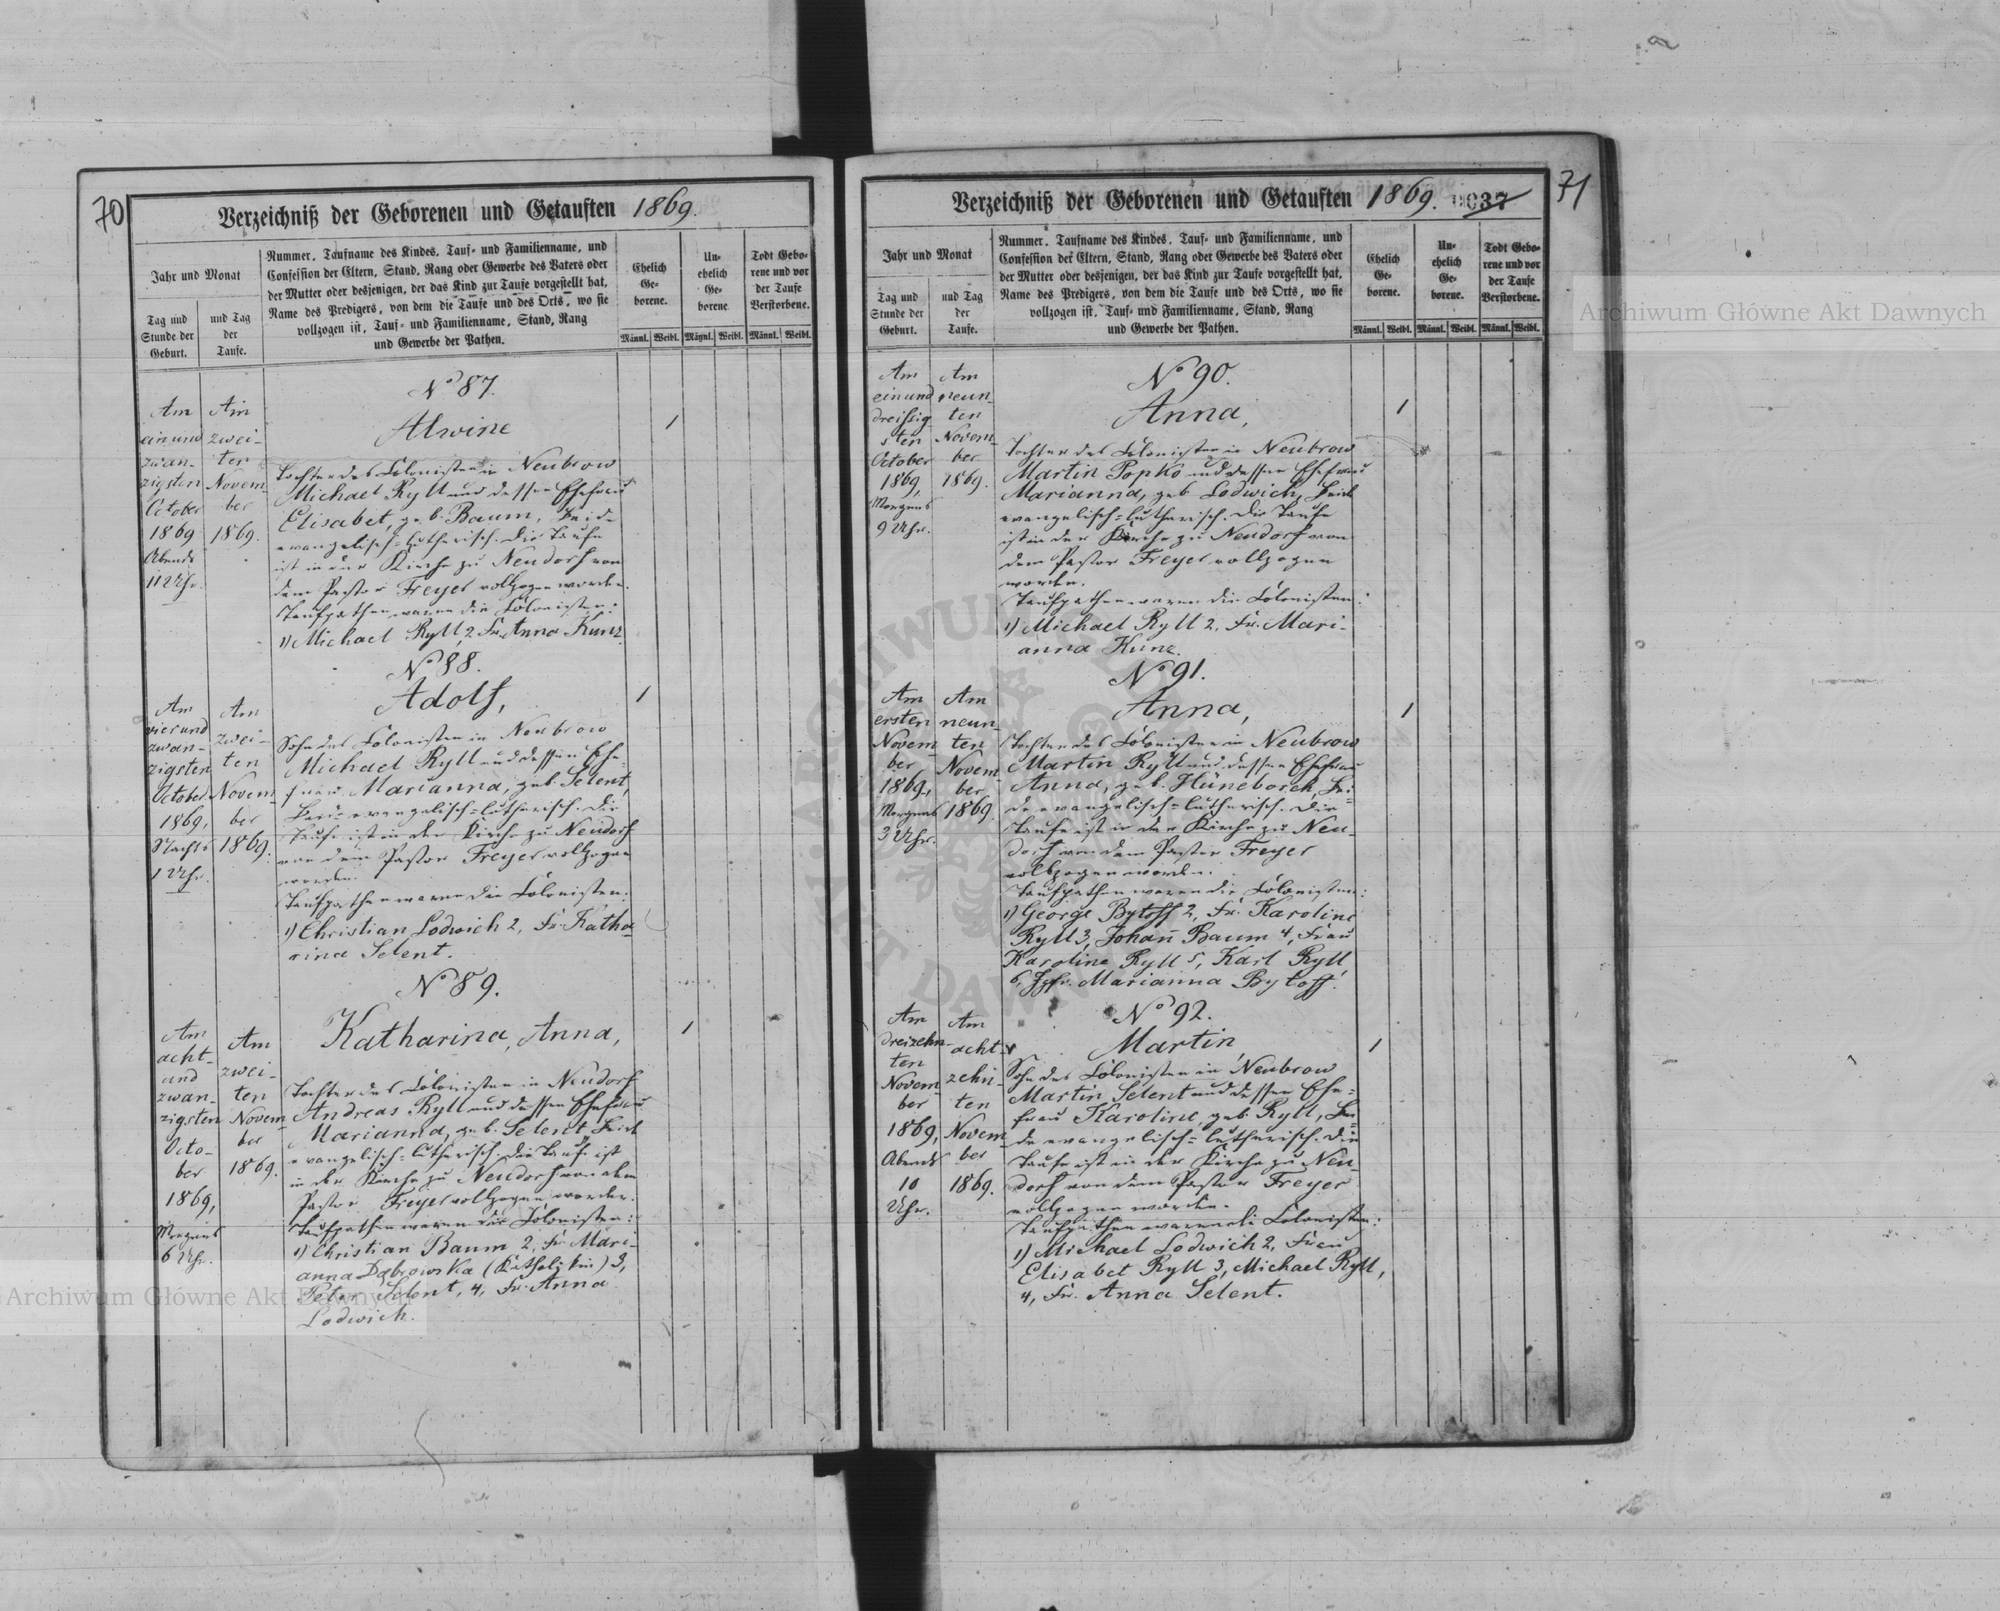 70
Verzeichniß der Geborenen und Getauften 1869.
Jahr und Monat
Tag und
Stunde der
Geburt.
und Tag
der
Taufe.
Nummer, Taufname des Kindes, Tauf- und Familienname, und
Confession der Eltern, Stand, Rang oder Gewerbe des Vaters oder
der Mutter oder desjenigen, der das Kind zur Taufe vorgestellt hat,
Name des Predigers, von dem die Taufe und des Orts, wo sie
vollzogen ist, Tauf- und Familienname, Stand, Rang
und Gewerbe der Pathen.
Ehelich
Ge-
borene.
Un-
ehelich
Ge-
borene.
Todt Gebo-
rene und vor
der Taufe
Verstorbene.
Männl. Weibl. Männl. Weibl. Männl. Weibl.
Am
ein und
zwan-
zigsten
October
1869
Abends
11 Uhr.
Am
zwei-
ten
Novem-
ber
1869.
No 87.
Alwine
Tochter des Colonisten in Neubrow
Michael Ryll und dessen Ehefrau
Elisabet, geb. Baum, Beide
evangelisch-lutherisch. Die Taufe
ist in der Kirche zu Neudorf von
dem Pastor Freyer vollzogen worden.
Taufpathen waren die Colonisten:
1) Michael Ryll 2, Fr. Anna Kunz
1
Am
vier und
zwan-
zigsten
October
1869,
Nachts
1 Uhr.
Am
zwei-
ten
Novem-
ber
1869.
No 88.
Adolf,
Sohn des Colonisten in Neubrow
Michael Ryll und dessen Ehe-
frau Marianna, geb. Selent,
Beide evangelisch-lutherisch. Die
Taufe ist in der Kirche zu Neudorf
von dem Pastor Freyer vollzogen
worden.
Taufpathen waren die Colonisten:
1) Christian Lodwich 2, Fr. Katha-
rina Selent.
1
Am
acht-
und
zwan-
zigsten
Octo-
ber
1869,
Morgens
6 Uhr.
Am
zwei-
ten
Novem-
ber
1869.
No 89.
Katharina, Anna,
Tochter des Colonisten in Neudorf
Andreas Ryll und dessen Ehefrau
Marianna, geb. Selent, Beide
evangelisch-lutherisch. Die Taufe ist
in der Kirche zu Neudorf von dem
Pastor Freyer vollzogen worden.
Taufpathen waren die Colonisten:
1) Christian Baum 2, Fr. Mari-
anna Dąbrowska (Katholikin) 3,
Peter Selent, 4, Fr. Anna
Lodwich.
1
71
Verzeichniß der Geborenen und Getauften 1869. 0037
Jahr und Monat
Tag und
Stunde der
Geburt.
und Tag
der
Taufe.
Nummer, Taufname des Kindes, Tauf- und Familienname, und
Confession der Eltern, Stand, Rang oder Gewerbe des Vaters oder
der Mutter oder desjenigen, der das Kind zur Taufe vorgestellt hat,
Name des Predigers, von dem die Taufe und des Orts, wo sie
vollzogen ist, Tauf- und Familienname, Stand, Rang
und Gewerbe der Pathen.
Ehelich
Ge-
borene.
Un-
ehelich
Ge-
borene.
Todt Gebo-
rene und vor
der Taufe
Verstorbene.
Männl. Weibl. Männl. Weibl. Männl. Weibl.
Am
ein und
dreissig-
sten
October
1869,
Morgens
9 Uhr.
Am
neun-
ten
Novem-
ber
1869.
No 90.
Anna,
Tochter des Colonisten in Neubrow
Martin Popko und dessen Ehefrau
Marianna, geb. Lodwich, Beide
evangelisch-lutherisch. Die Taufe
ist in der Kirche zu Neudorf von
dem Pastor Freyer vollzogen
worden.
Taufpathen waren die Colonisten:
1) Michael Ryll 2, Fr. Mari-
anna Kunz.
1
Am
ersten
Novem-
ber
1869,
Morgens
3 Uhr.
Am
neun-
ten
Novem-
ber
1869.
No 91.
Anna,
Tochter des Colonisten in Neubrow
Martin Ryll und dessen Ehefrau
Anna, geb. Hüneborch, Bei-
de evangelisch-lutherisch. Die
Taufe ist in der Kirche zu Neu-
dorf von dem Pastor Freyer
vollzogen worden.
Taufpathen waren die Colonisten:
1) George Bytoff 2, Fr. Karoline
Ryll 3, Johan̄ Baum 4, Frau
Karoline Ryll 5, Karl Ryll
6, Jgfr. Marianna Bytoff.
1
Am
dreizehn-
ten
Novem-
ber
1869,
Abends
10
Uhr.
Am
acht-
zehn-
ten
Novem-
ber
1869.
No 92.
Martin,
Sohn des Colonisten in Neubrow
Martin Selent und dessen Ehe-
frau Karoline, geb. Ryll, Bei-
de evangelisch-lutherisch. Die
Taufe ist in der Kirche zu Neu-
dorf von dem Pastor Freyer
vollzogen worden.
Taufpathen waren die Colonisten:
1) Michael Lodwich 2, Frau
Elisabet Ryll 3, Michael Ryll,
4, Fr. Anna Selent.
1
Archiwum Główne Akt Dawnych
Archiwum Główne Akt Dawnych